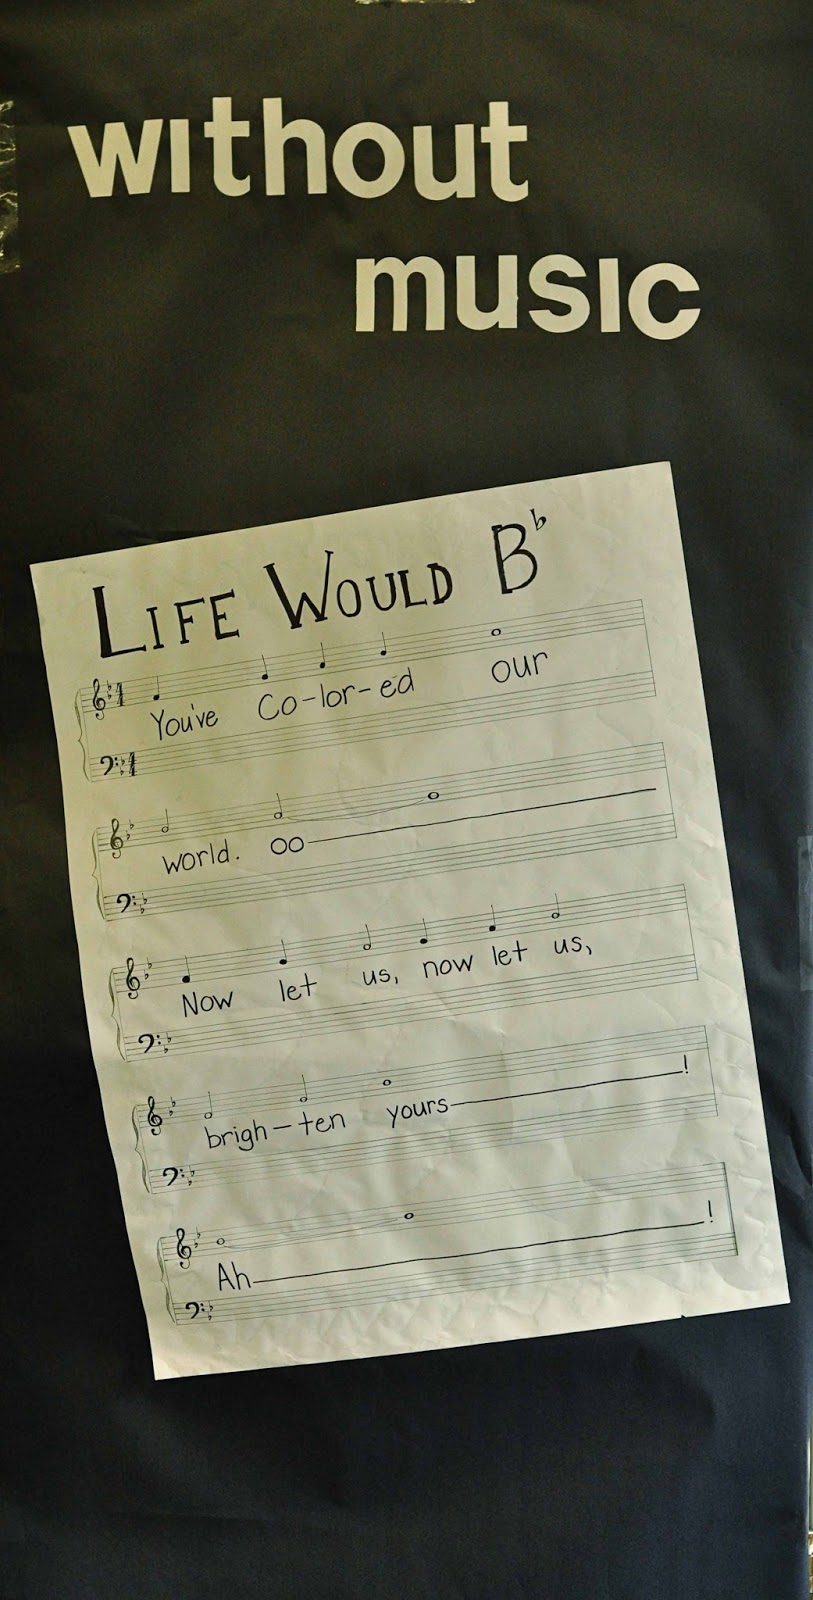 without
music
LIFE WOULD B♭
You've Co-lor-ed our
world. Oo
Now let us, now let us,
brigh-ten yours!
Ah!